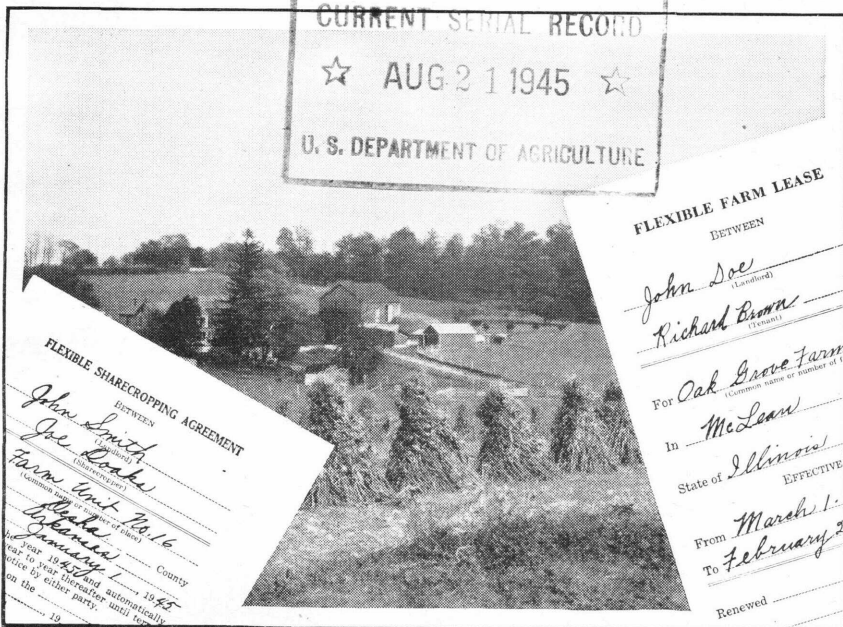 CURRENT SERIAL RECORD
☆ AUG 21 1945 ☆
U. S. DEPARTMENT OF AGRICULTURE
FLEXIBLE SHARECROPPING AGREEMENT
BETWEEN
John Smith
(Landlord)
Joe Doaks
(Sharecropper)
Farm Unit No. 16
(Common name or number of place)
Desha County
Arkansas
January 1, 1945
year 1945 and automatically
year to year thereafter until
notice by either party.
on the
, 19
FLEXIBLE FARM LEASE
BETWEEN
John Doe
(Landlord)
Richard Brown
(Tenant)
For Oak Grove Farm
(Common name or number of
In McLean
State of Illinois
EFFECTIVE
From March 1,
To February 2
Renewed